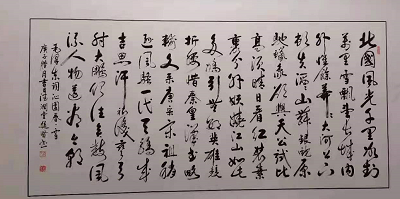 北國風光千里冰封
萬里雪飄望長城内
外惟餘莽莽大河上下
頓失滔滔山舞銀蛇原
馳蠟象欲與天公試比
高須晴日看紅裝素
裹分外妖嬈江山如此
多嬌引無數英雄競
折腰惜秦皇漢武略
輸文采唐宗宋祖稍
遜風騷一代天驕成
吉思汗只識彎弓
射大鵰俱往矣數風
流人物還看今朝
毛澤東詞沁園春雪
庚子